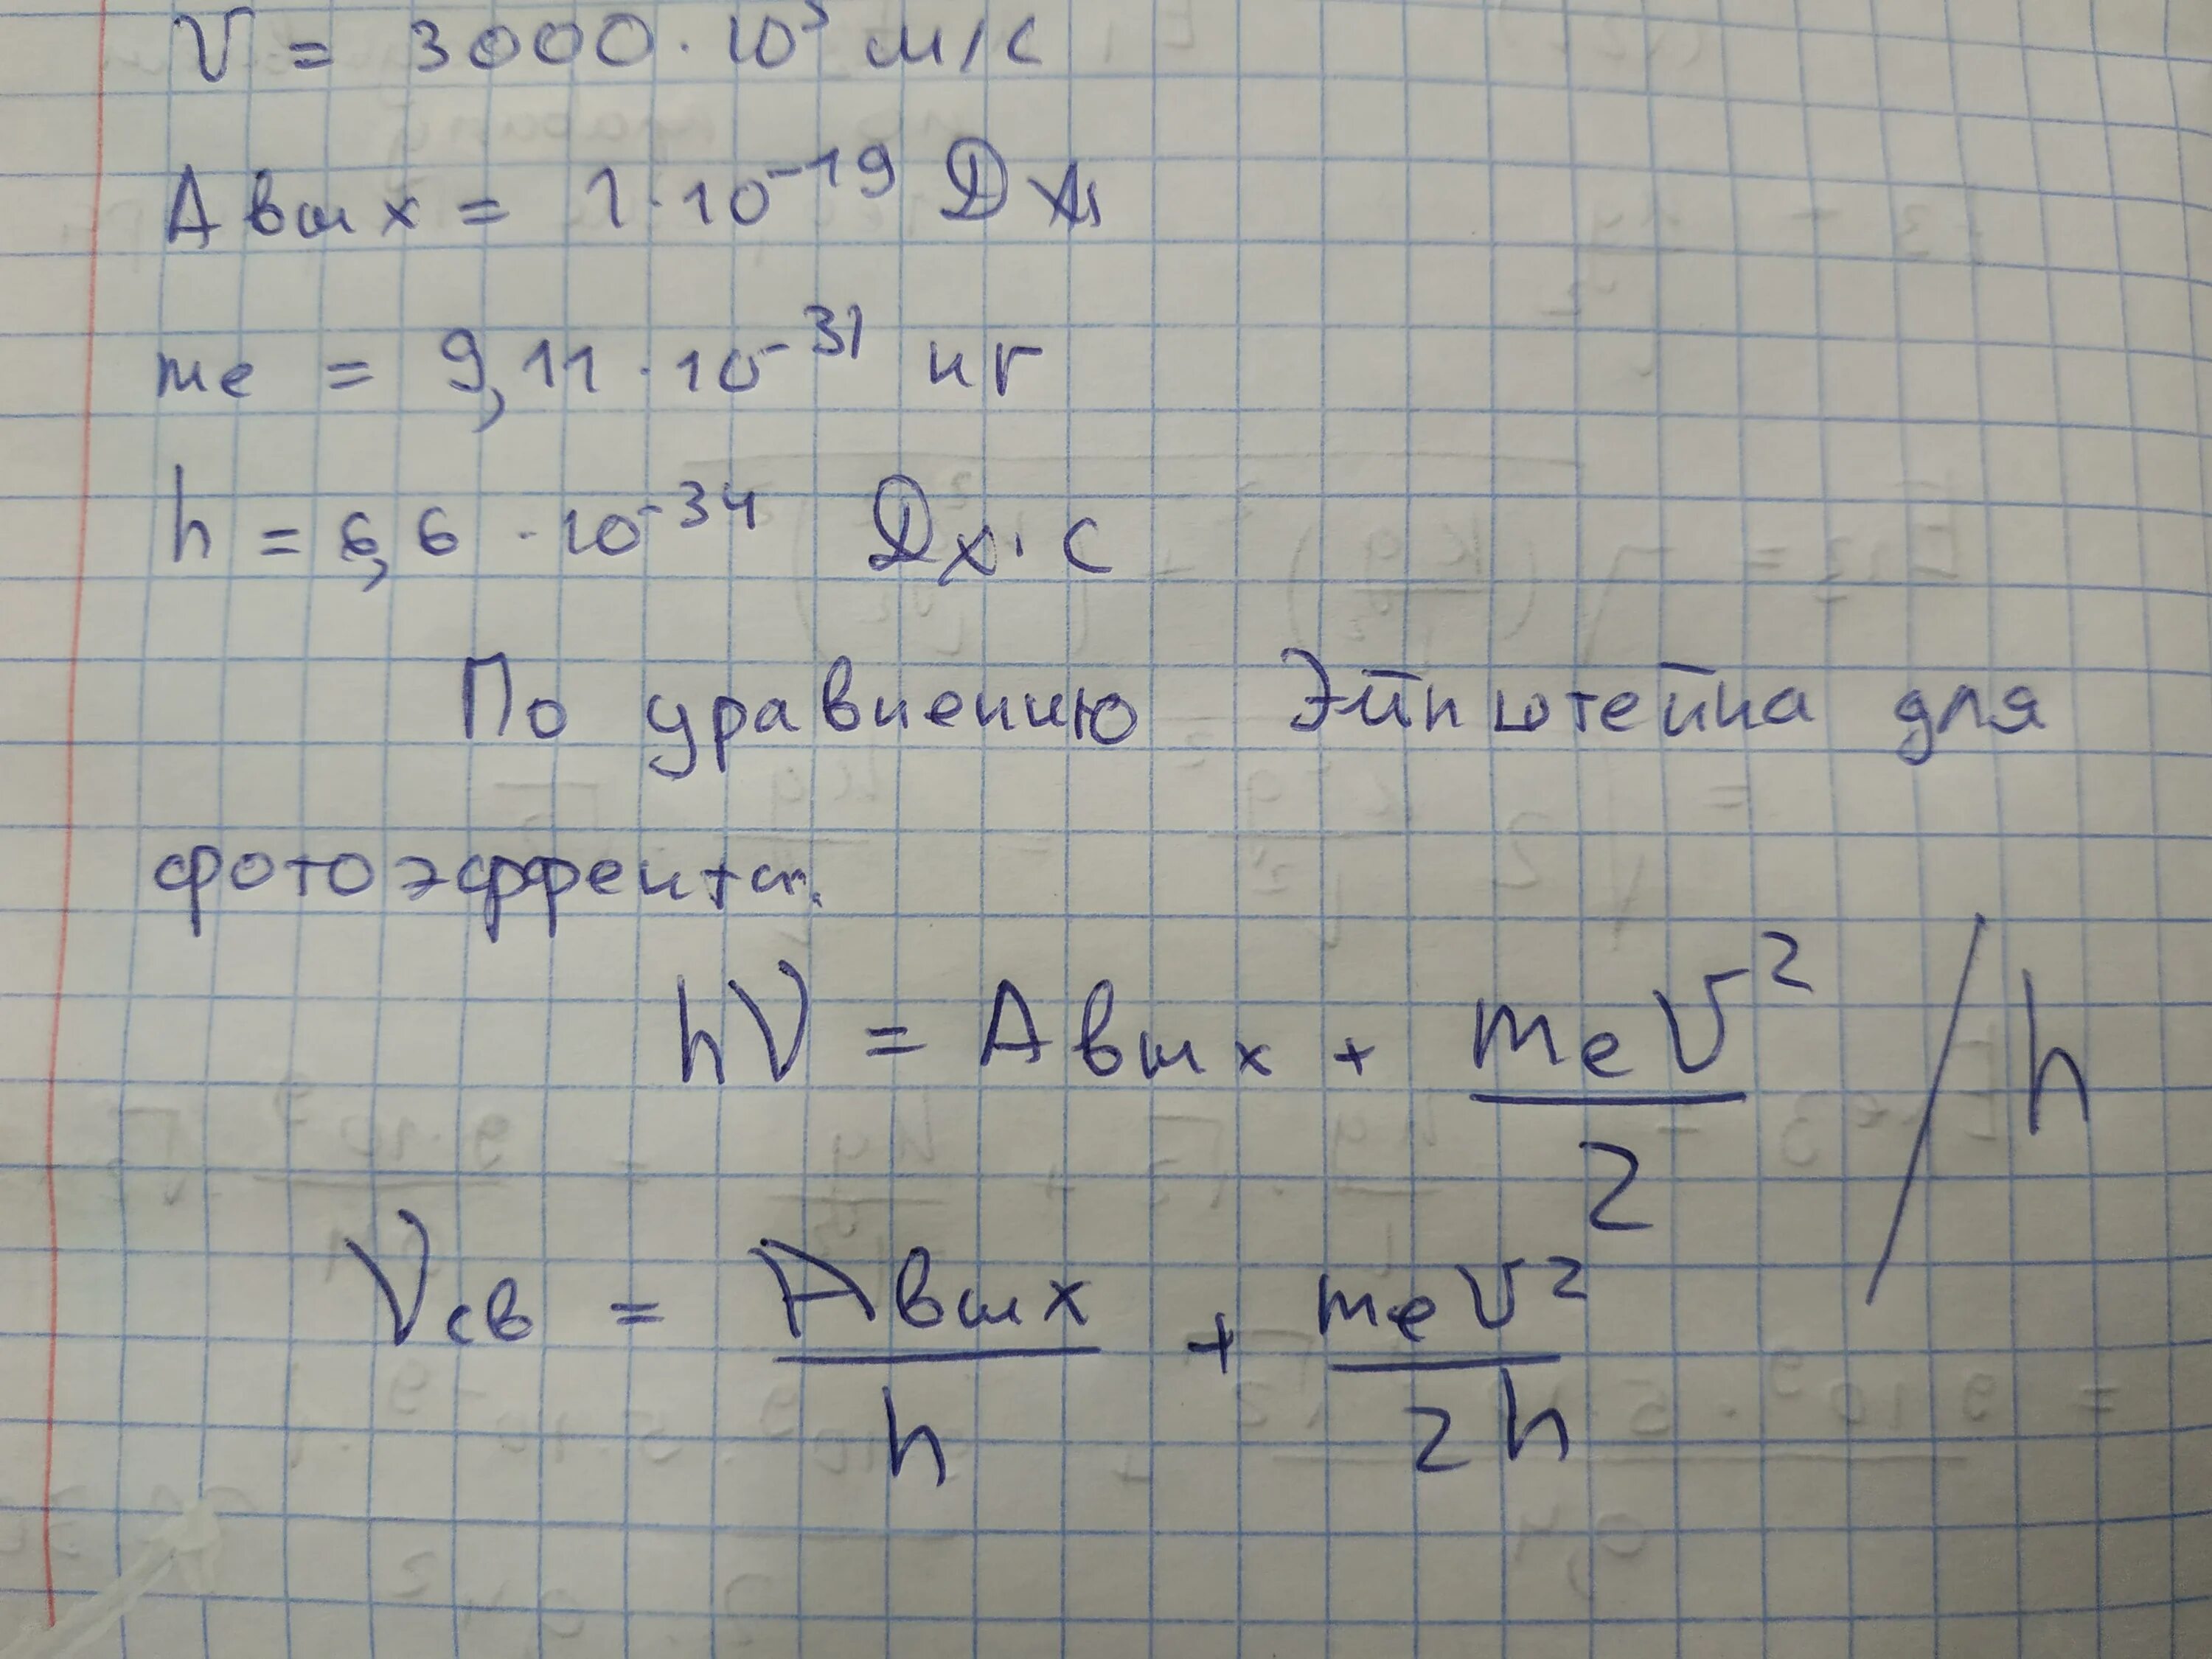 V = 3000 · 10³ м/с
Aвых = 1 · 10⁻¹⁹ Дж
me = 9,11 · 10⁻³¹ кг
h = 6,6 · 10⁻³⁴ Дж · с
По уравнению Эйнштейна для
фотоэффекта.
hν = Aвых + meV²/2 / h
νсв = Aвых/h + meV²/2h